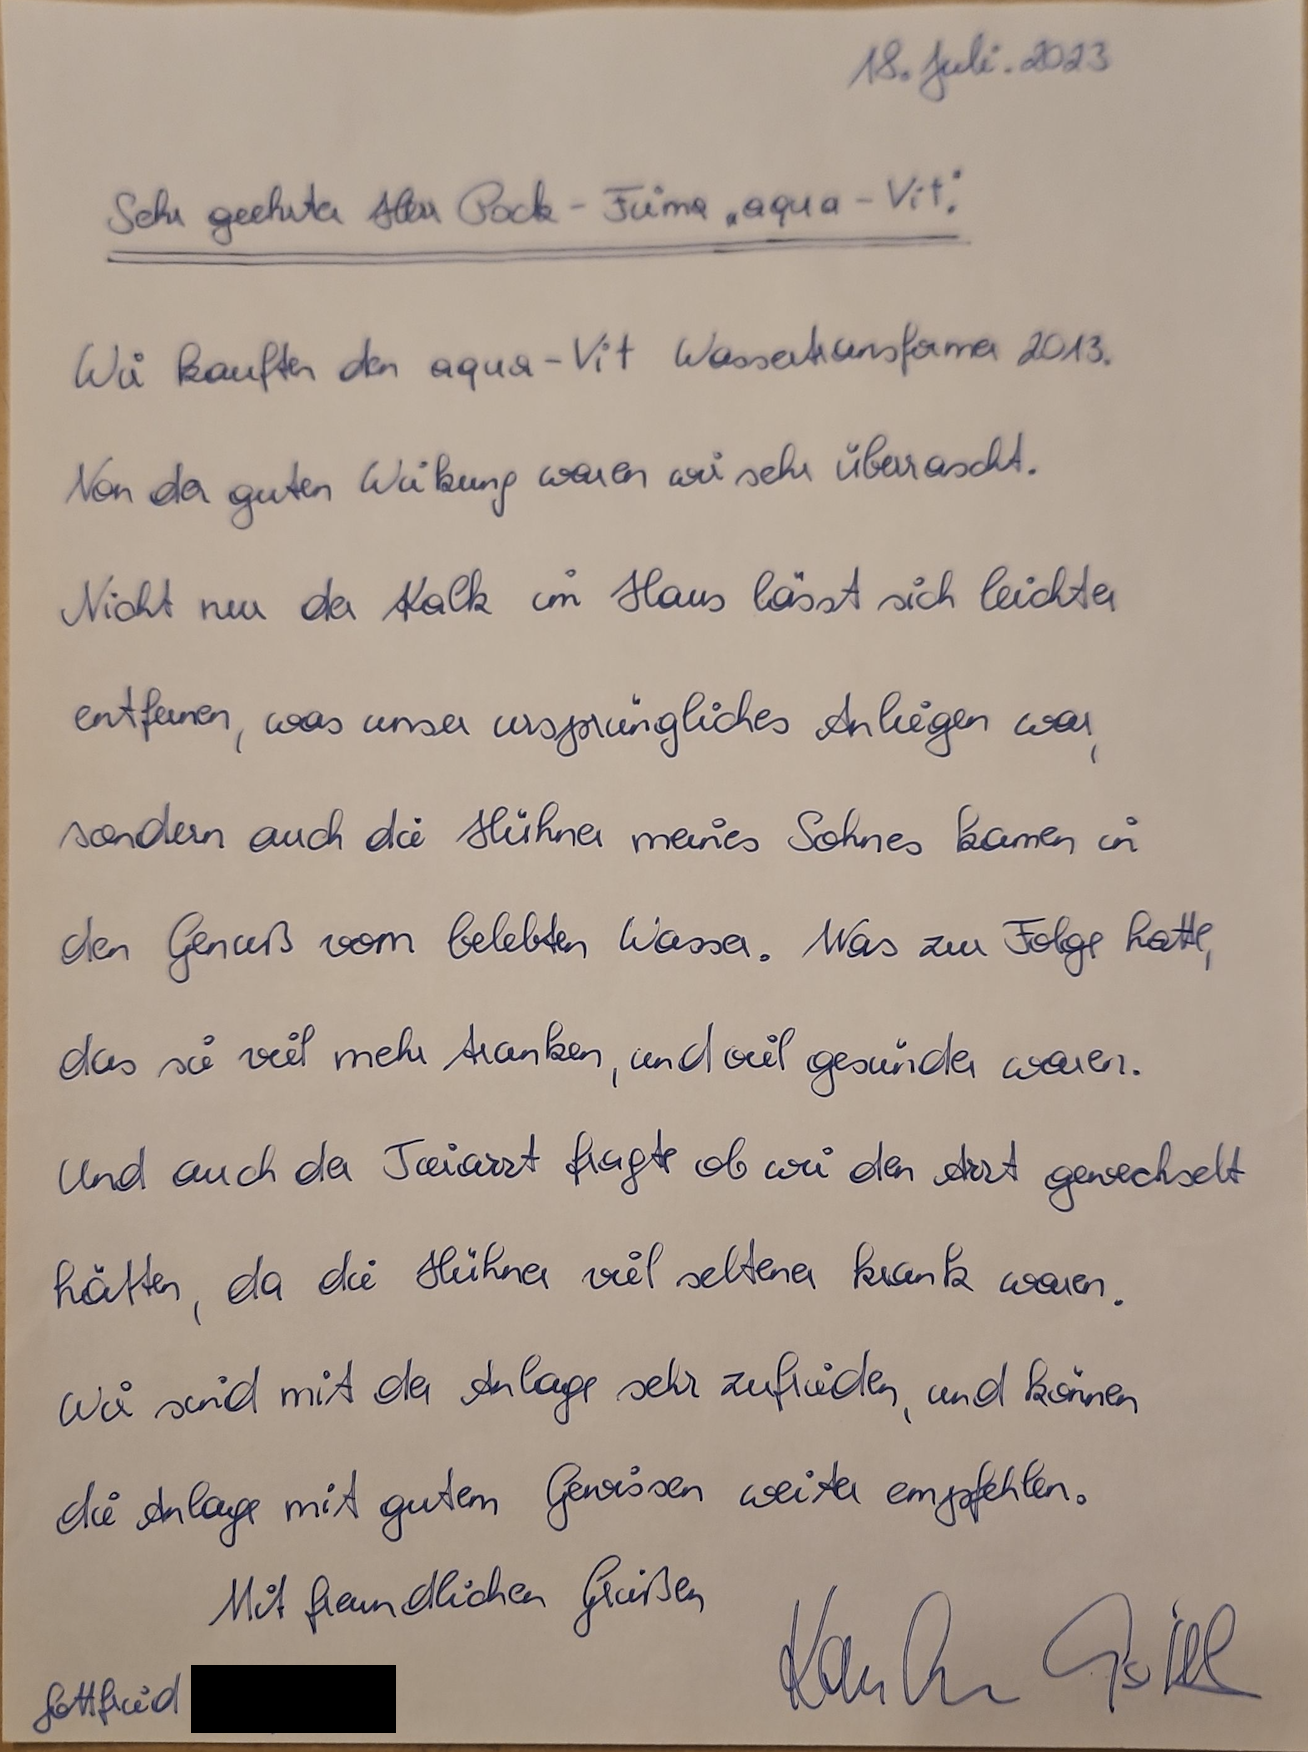 18. Juli. 2023
Sehr geehrter Herr Pock - Firma „aqua - Vit":
Wir kauften den aqua - Vit Wassertransformer 2013.
Von der guten Wirkung waren wir sehr überrascht.
Nicht nur der Kalk im Haus lässt sich leichter
entfernen, was unser ursprüngliches Anliegen war,
sondern auch die Hühner meines Sohnes kamen in
den Genuß vom belebten Wasser. Was zur Folge hatte,
das sie viel mehr tranken, und viel gesünder waren.
Und auch der Tierarzt fragte ob wir den Arzt gewechselt
hätten, da die Hühner viel seltener krank waren.
Wir sind mit der Anlage sehr zufrieden, und können
die Anlage mit gutem Gewissen weiter empfehlen.
Mit freundlichen Grüßen
Gottfried